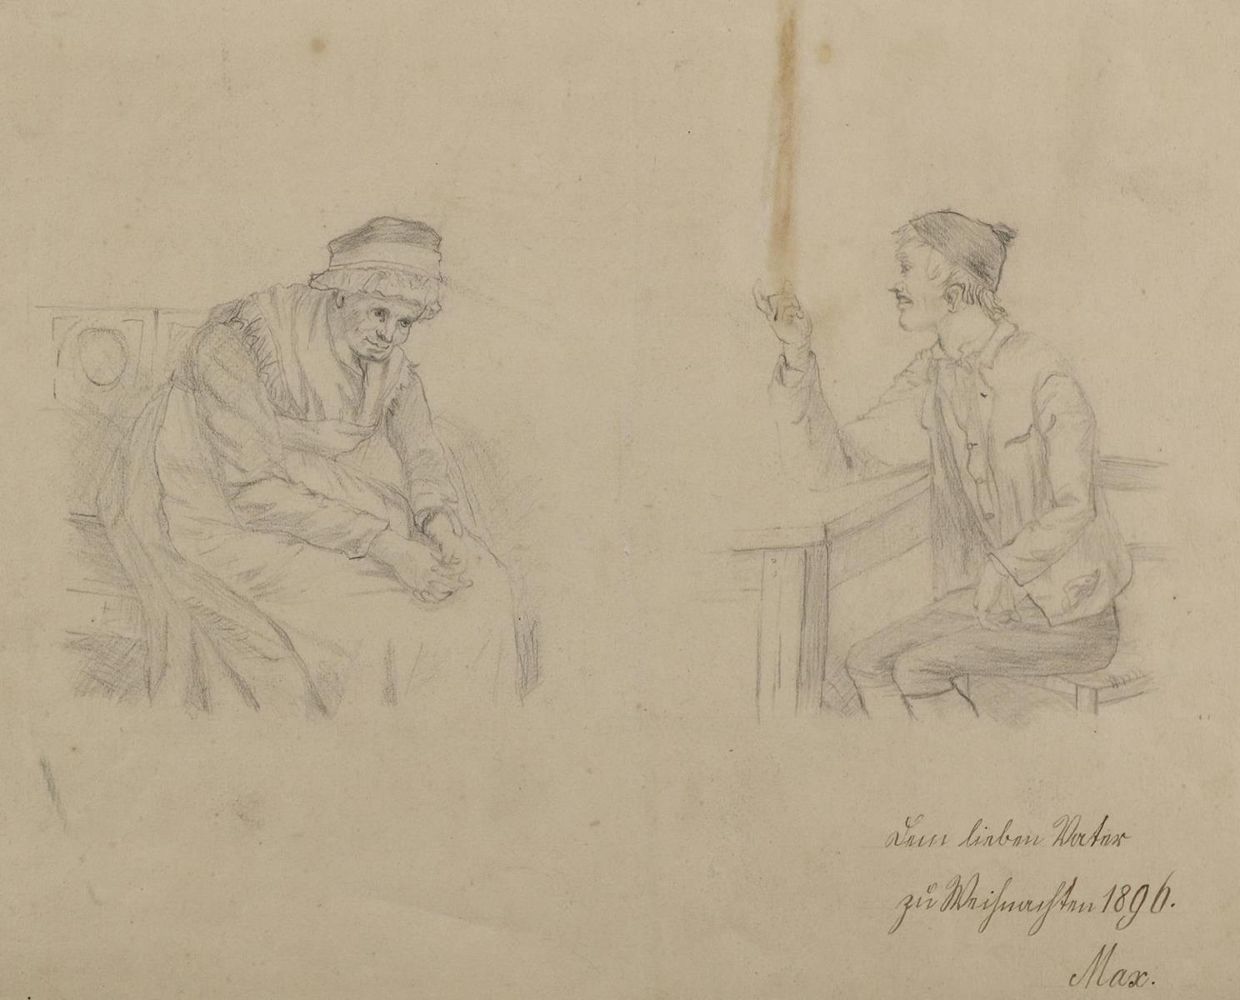 Dem lieben Vater
zu Weihnachten 1896.
Max.